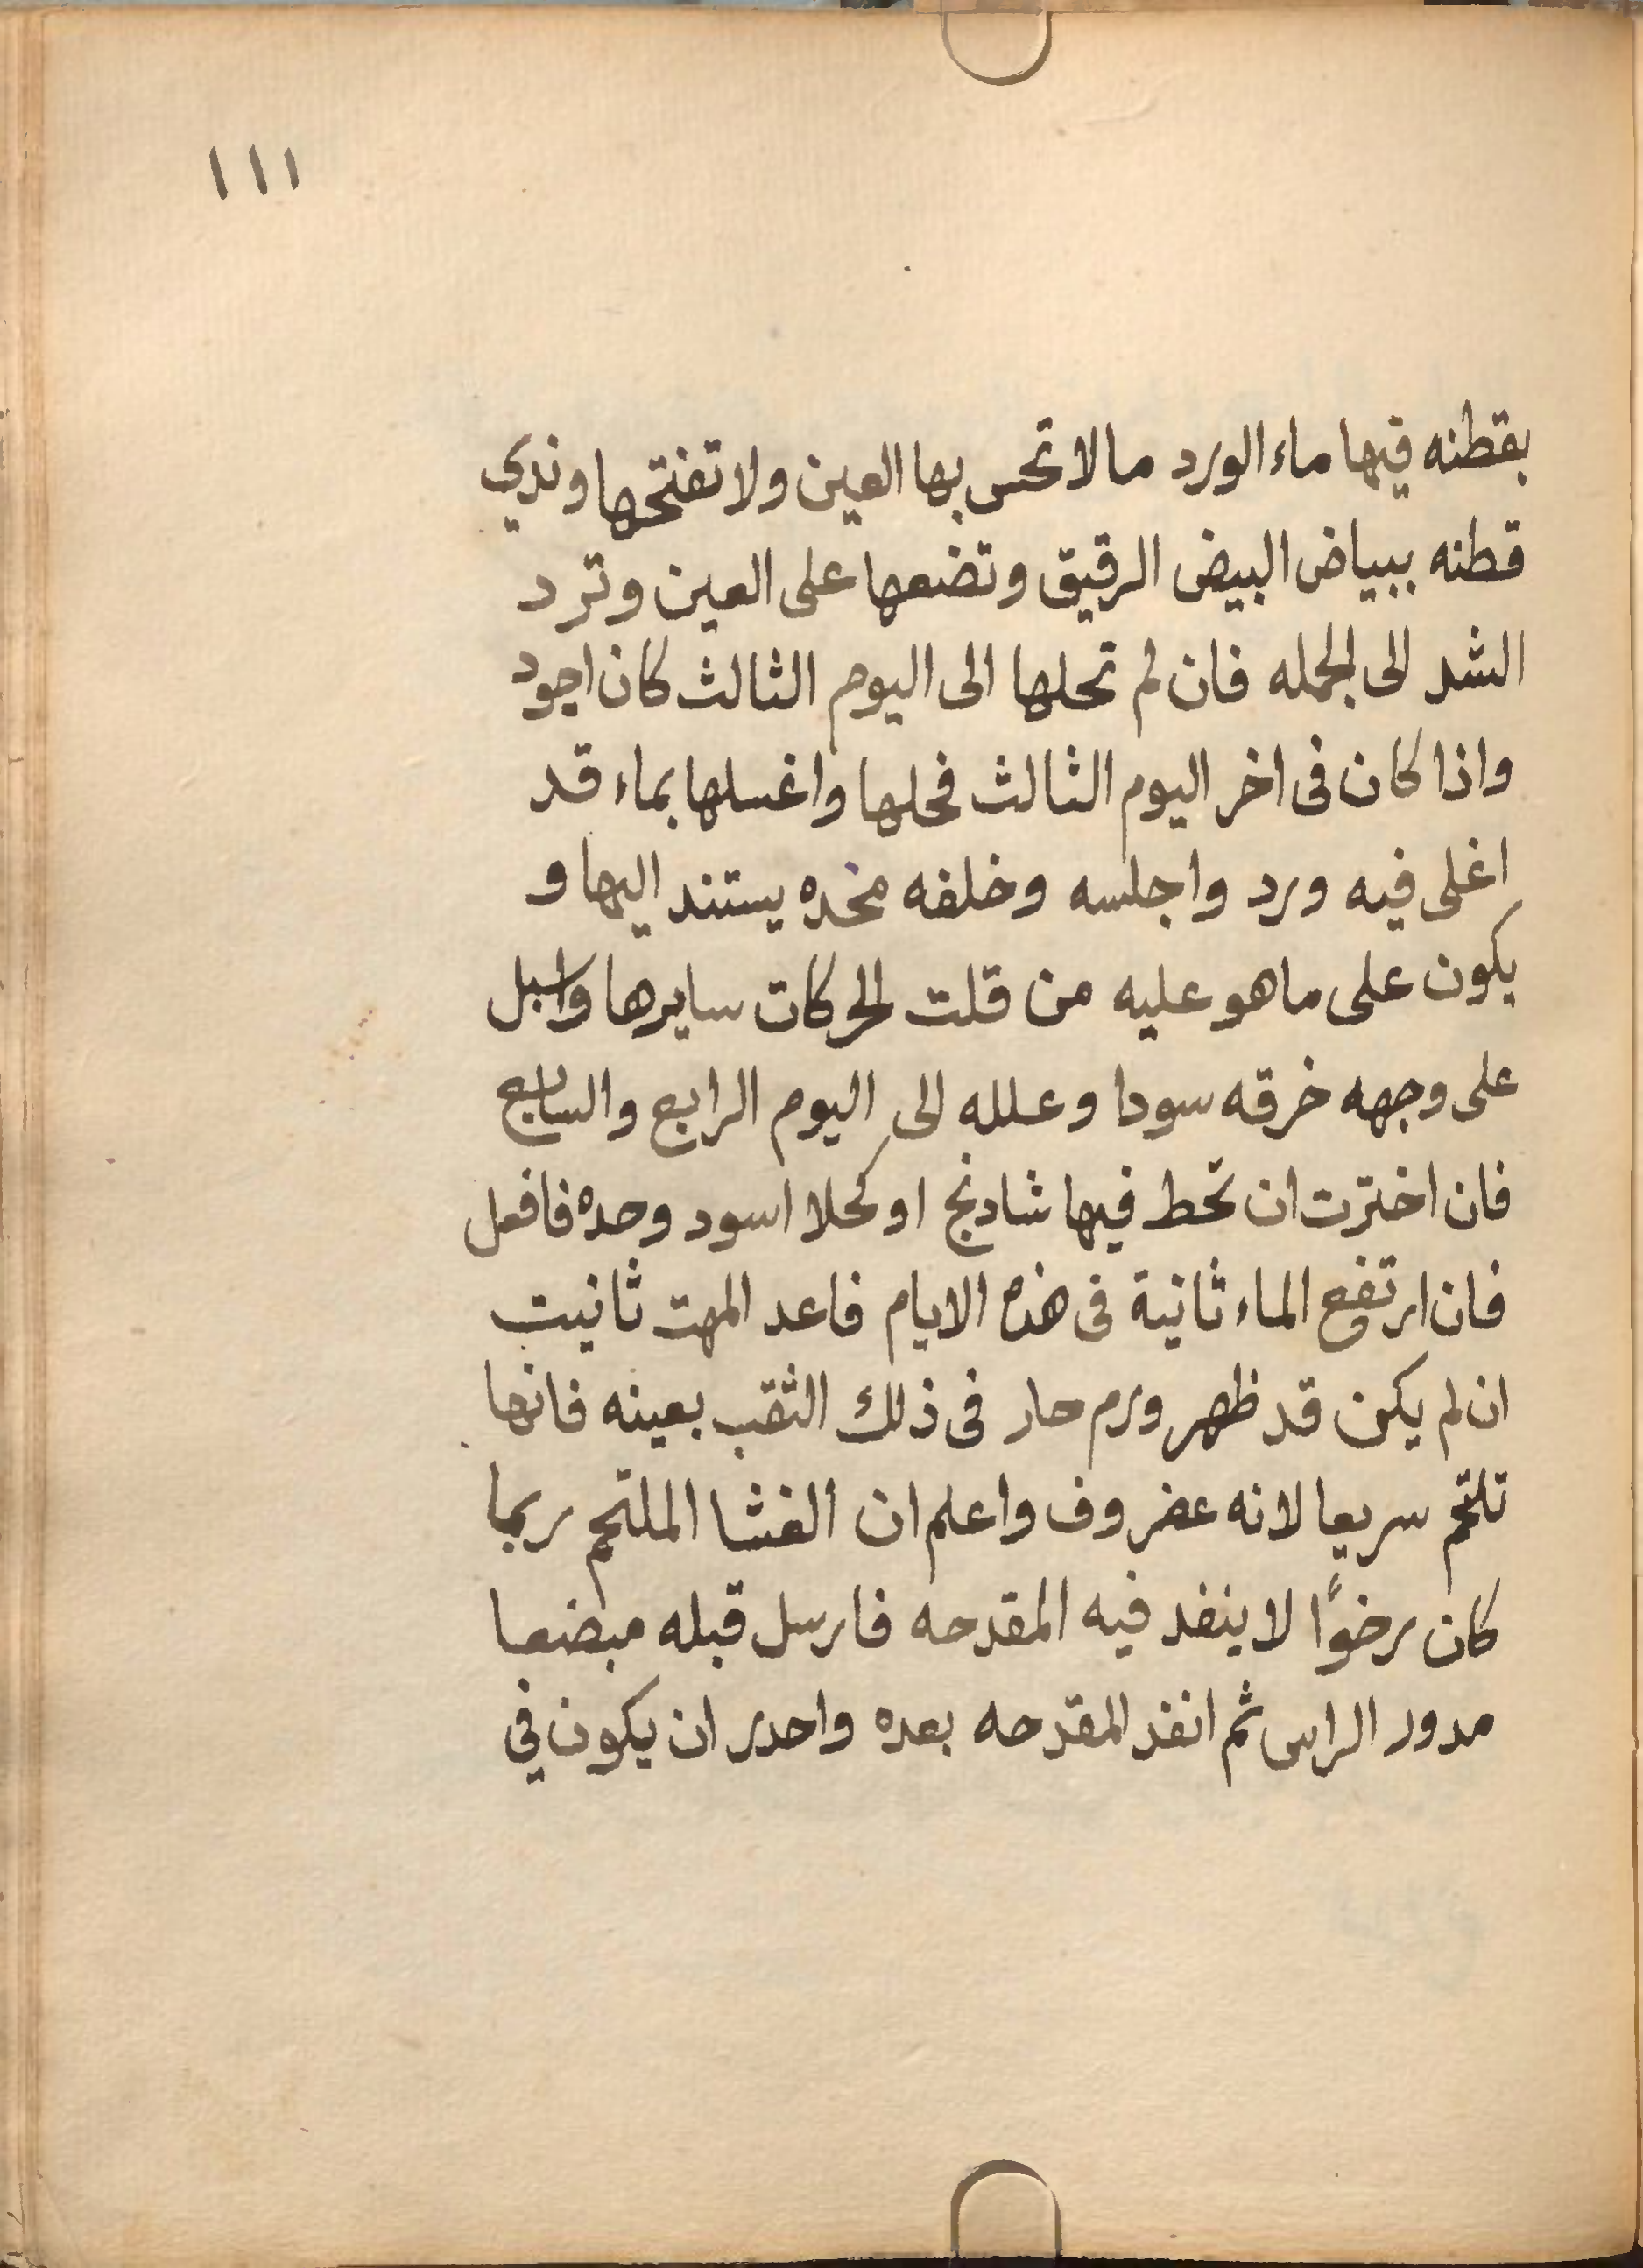 ١١١
بقطنه فيها ماء الورد مالا تحس بها العين ولا تفتحها وندي
قطنه ببياض البيض الرقيق وتضعها على العين وترد
الشد الى الجمله فان لم تحلها الى اليوم الثالث كان اجود
واذا كان فى اخر اليوم الثالث فحلها واغسلها بماء قد
اغلى فيه ورد واجلسه وخلفه مخده يستند اليها و
يكون على ماهو عليه من قلت الحركات سايرها واسبل
على وجهه خرقه سودا وعلله الى اليوم الرابع والسابع
فان اخترت ان تحط فيها شادنج او كحلا اسود وحده فافعل
فان ارتفع الماء ثانية فى هذه الايام فاعد المهت ثانيت
ان لم يكن قد ظهر ورم حار فى ذلك الثقب بعينه فانها
تلتحم سريعا لانه عضروف واعلم ان الغشا الملتحم ربما
كان رخوًا لا ينفد فيه المقدحه فارسل قبله مبضعا
مدور الراس ثم انفد المقدحه بعده واحدر ان يكون في